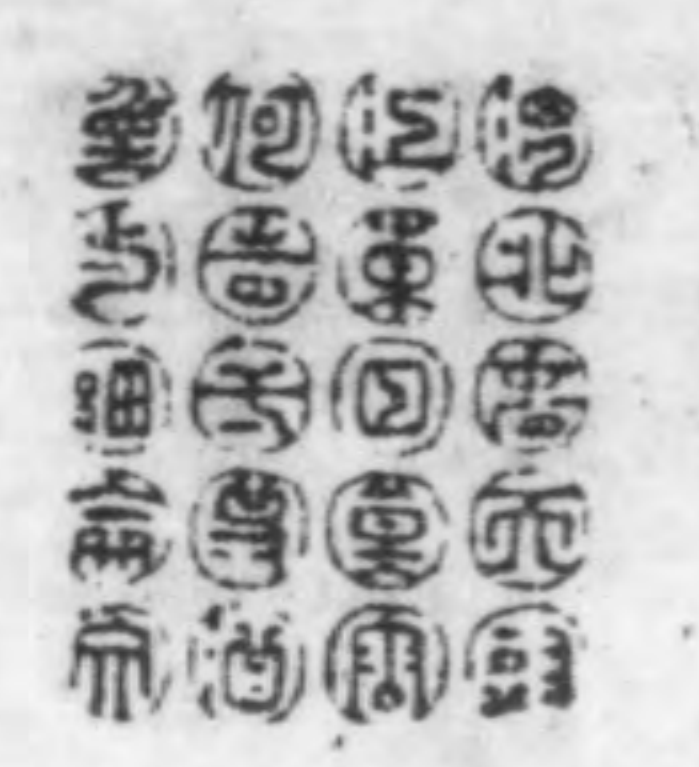 渭北春天樹
江東日暮雲
何時一樽酒
重與細論文